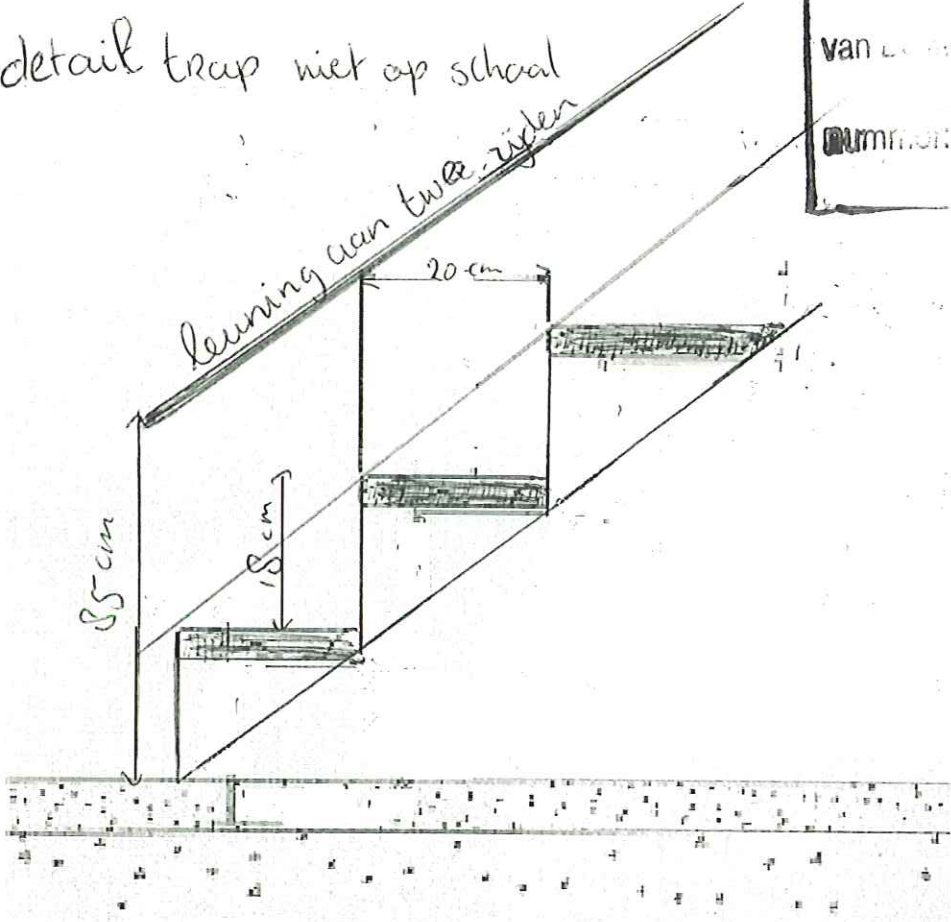 detail trap niet op schaal
van
leuning aan twee zijden
20 cm
18 cm
85 cm